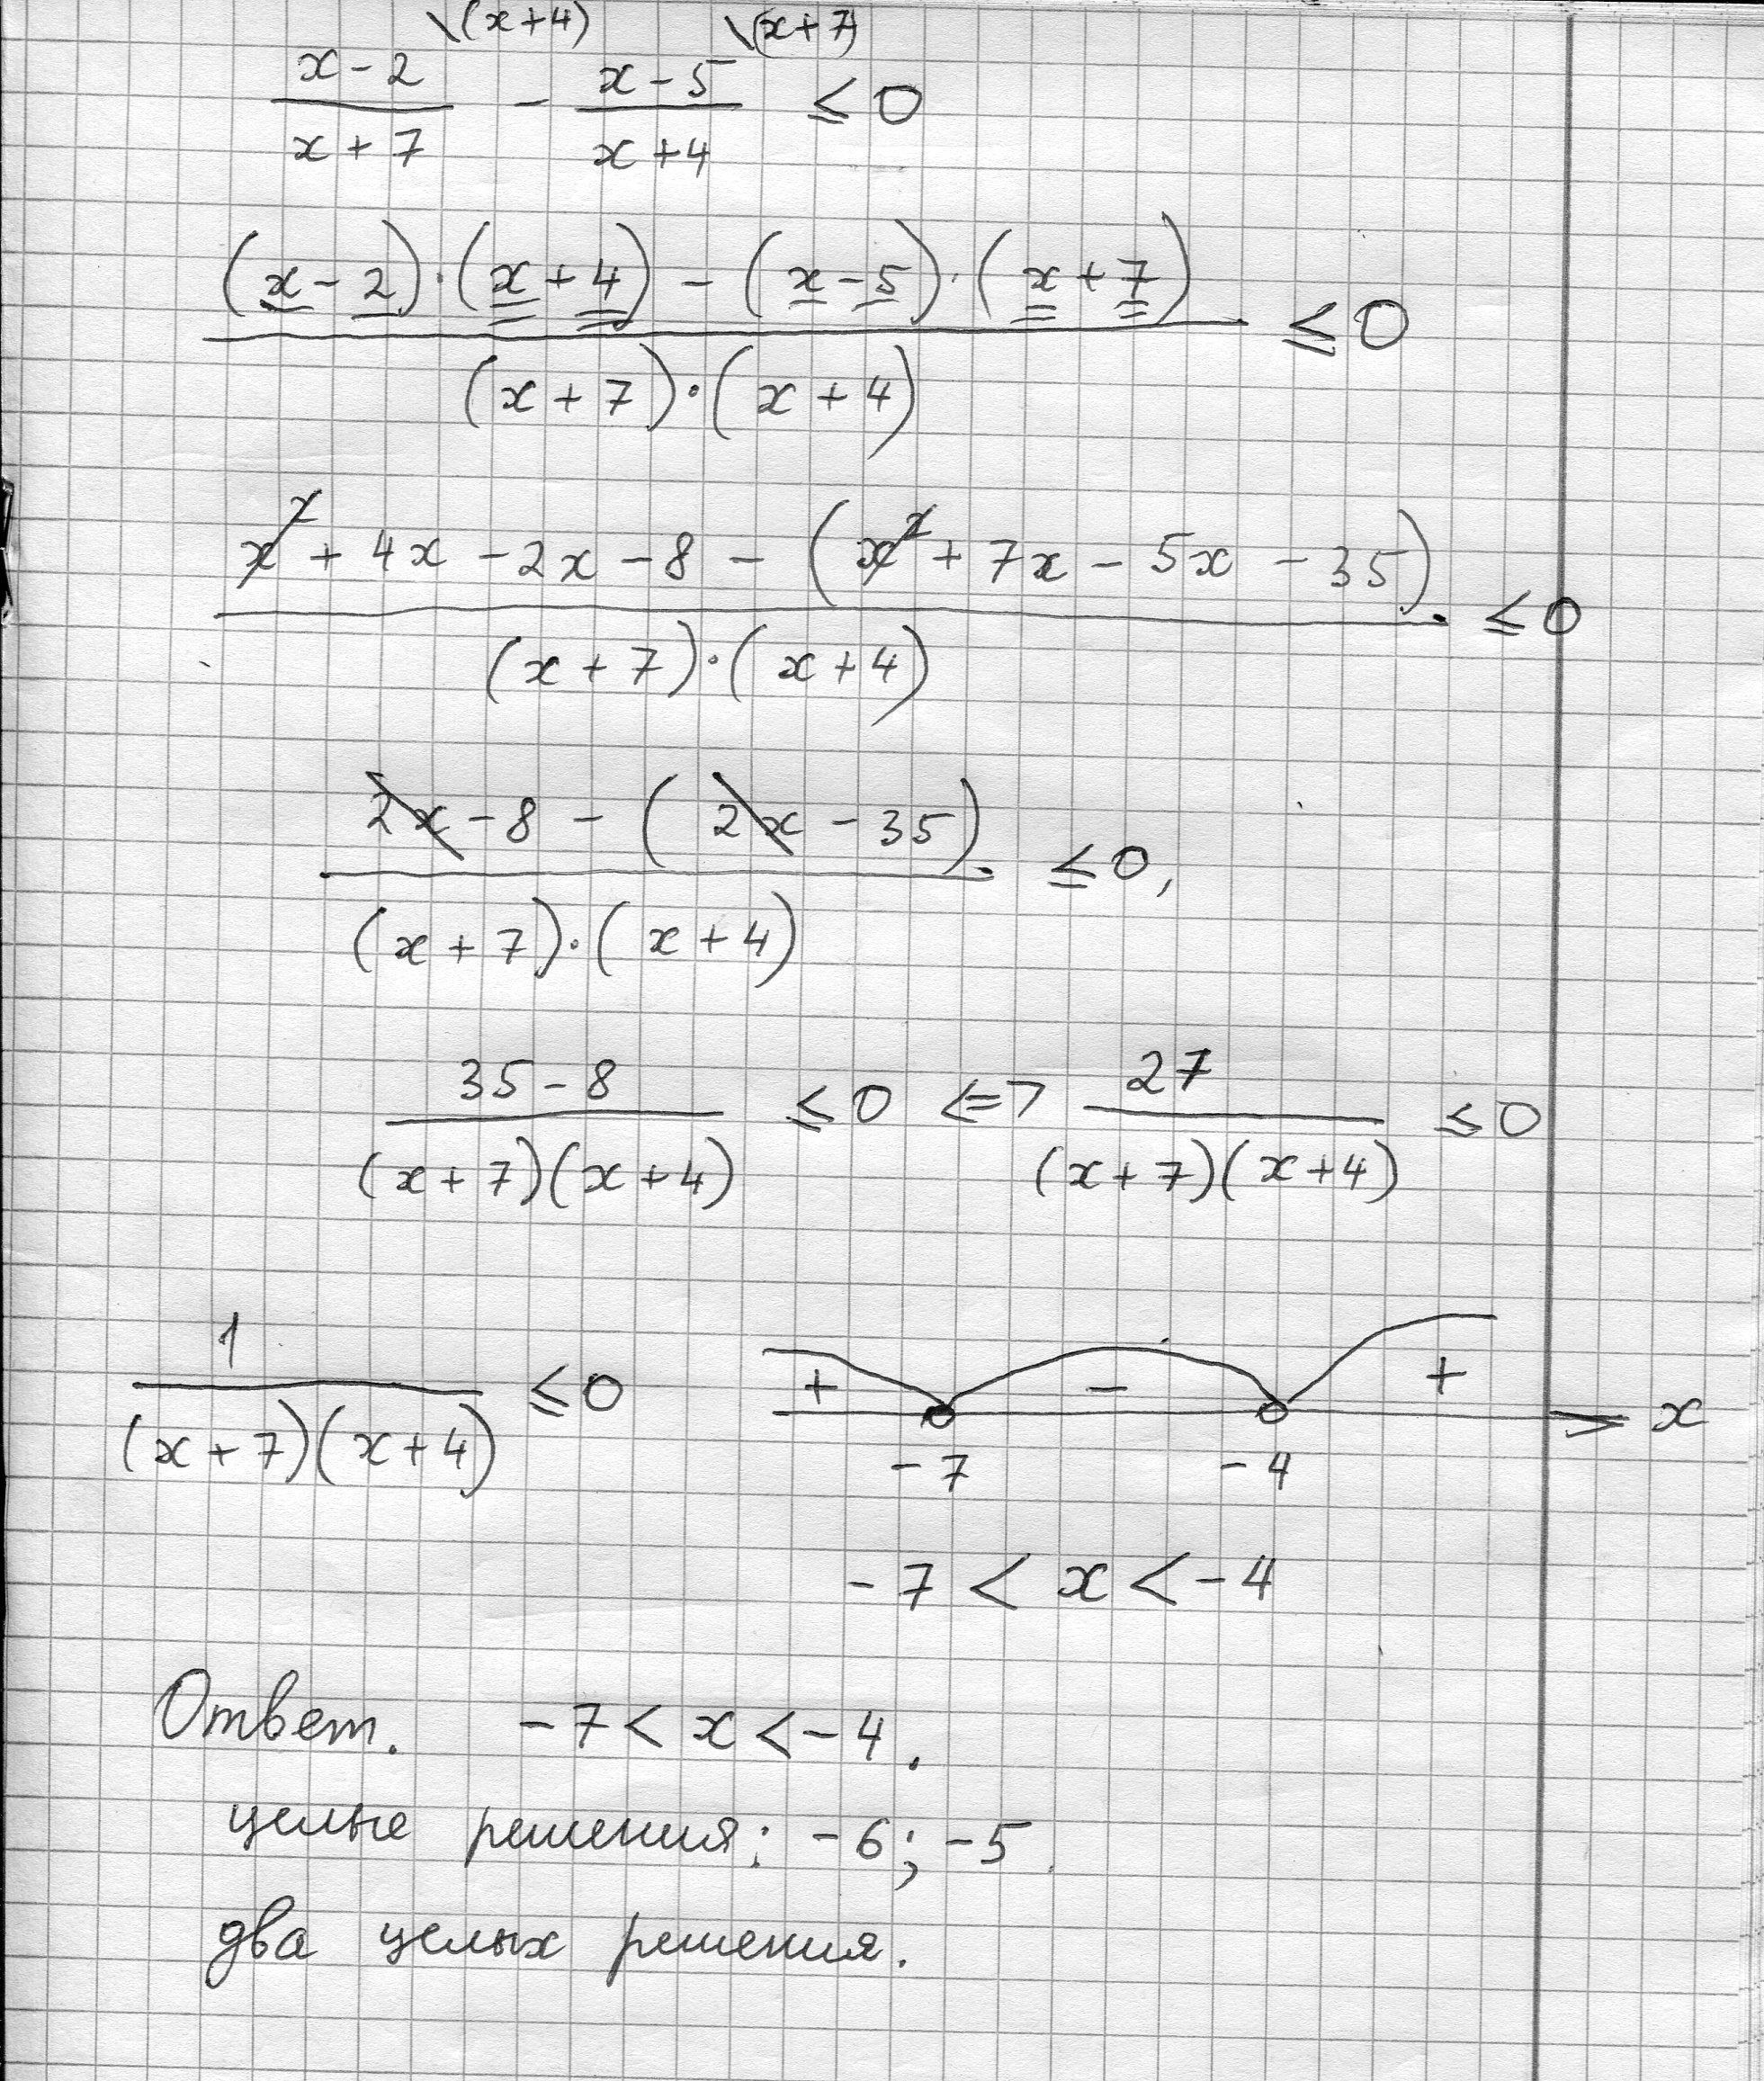 \(x+4) \(x+7)
x-2 / x+7 - x-5 / x+4 ≤ 0
(x-2)·(x+4) - (x-5)·(x+7) ≤ 0
(x+7)·(x+4)
x² + 4x - 2x - 8 - (x² + 7x - 5x - 35) ≤ 0
(x+7)·(x+4)
2x - 8 - (2x - 35) ≤ 0,
(x+7)·(x+4)
35-8 / (x+7)(x+4) ≤ 0 <=> 27 / (x+7)(x+4) ≤ 0
1 / (x+7)(x+4) ≤ 0 + - + x
-7 -4
-7 < x < -4
Ответ. -7 < x < -4.
целые решения: -6; -5
два целых решения.